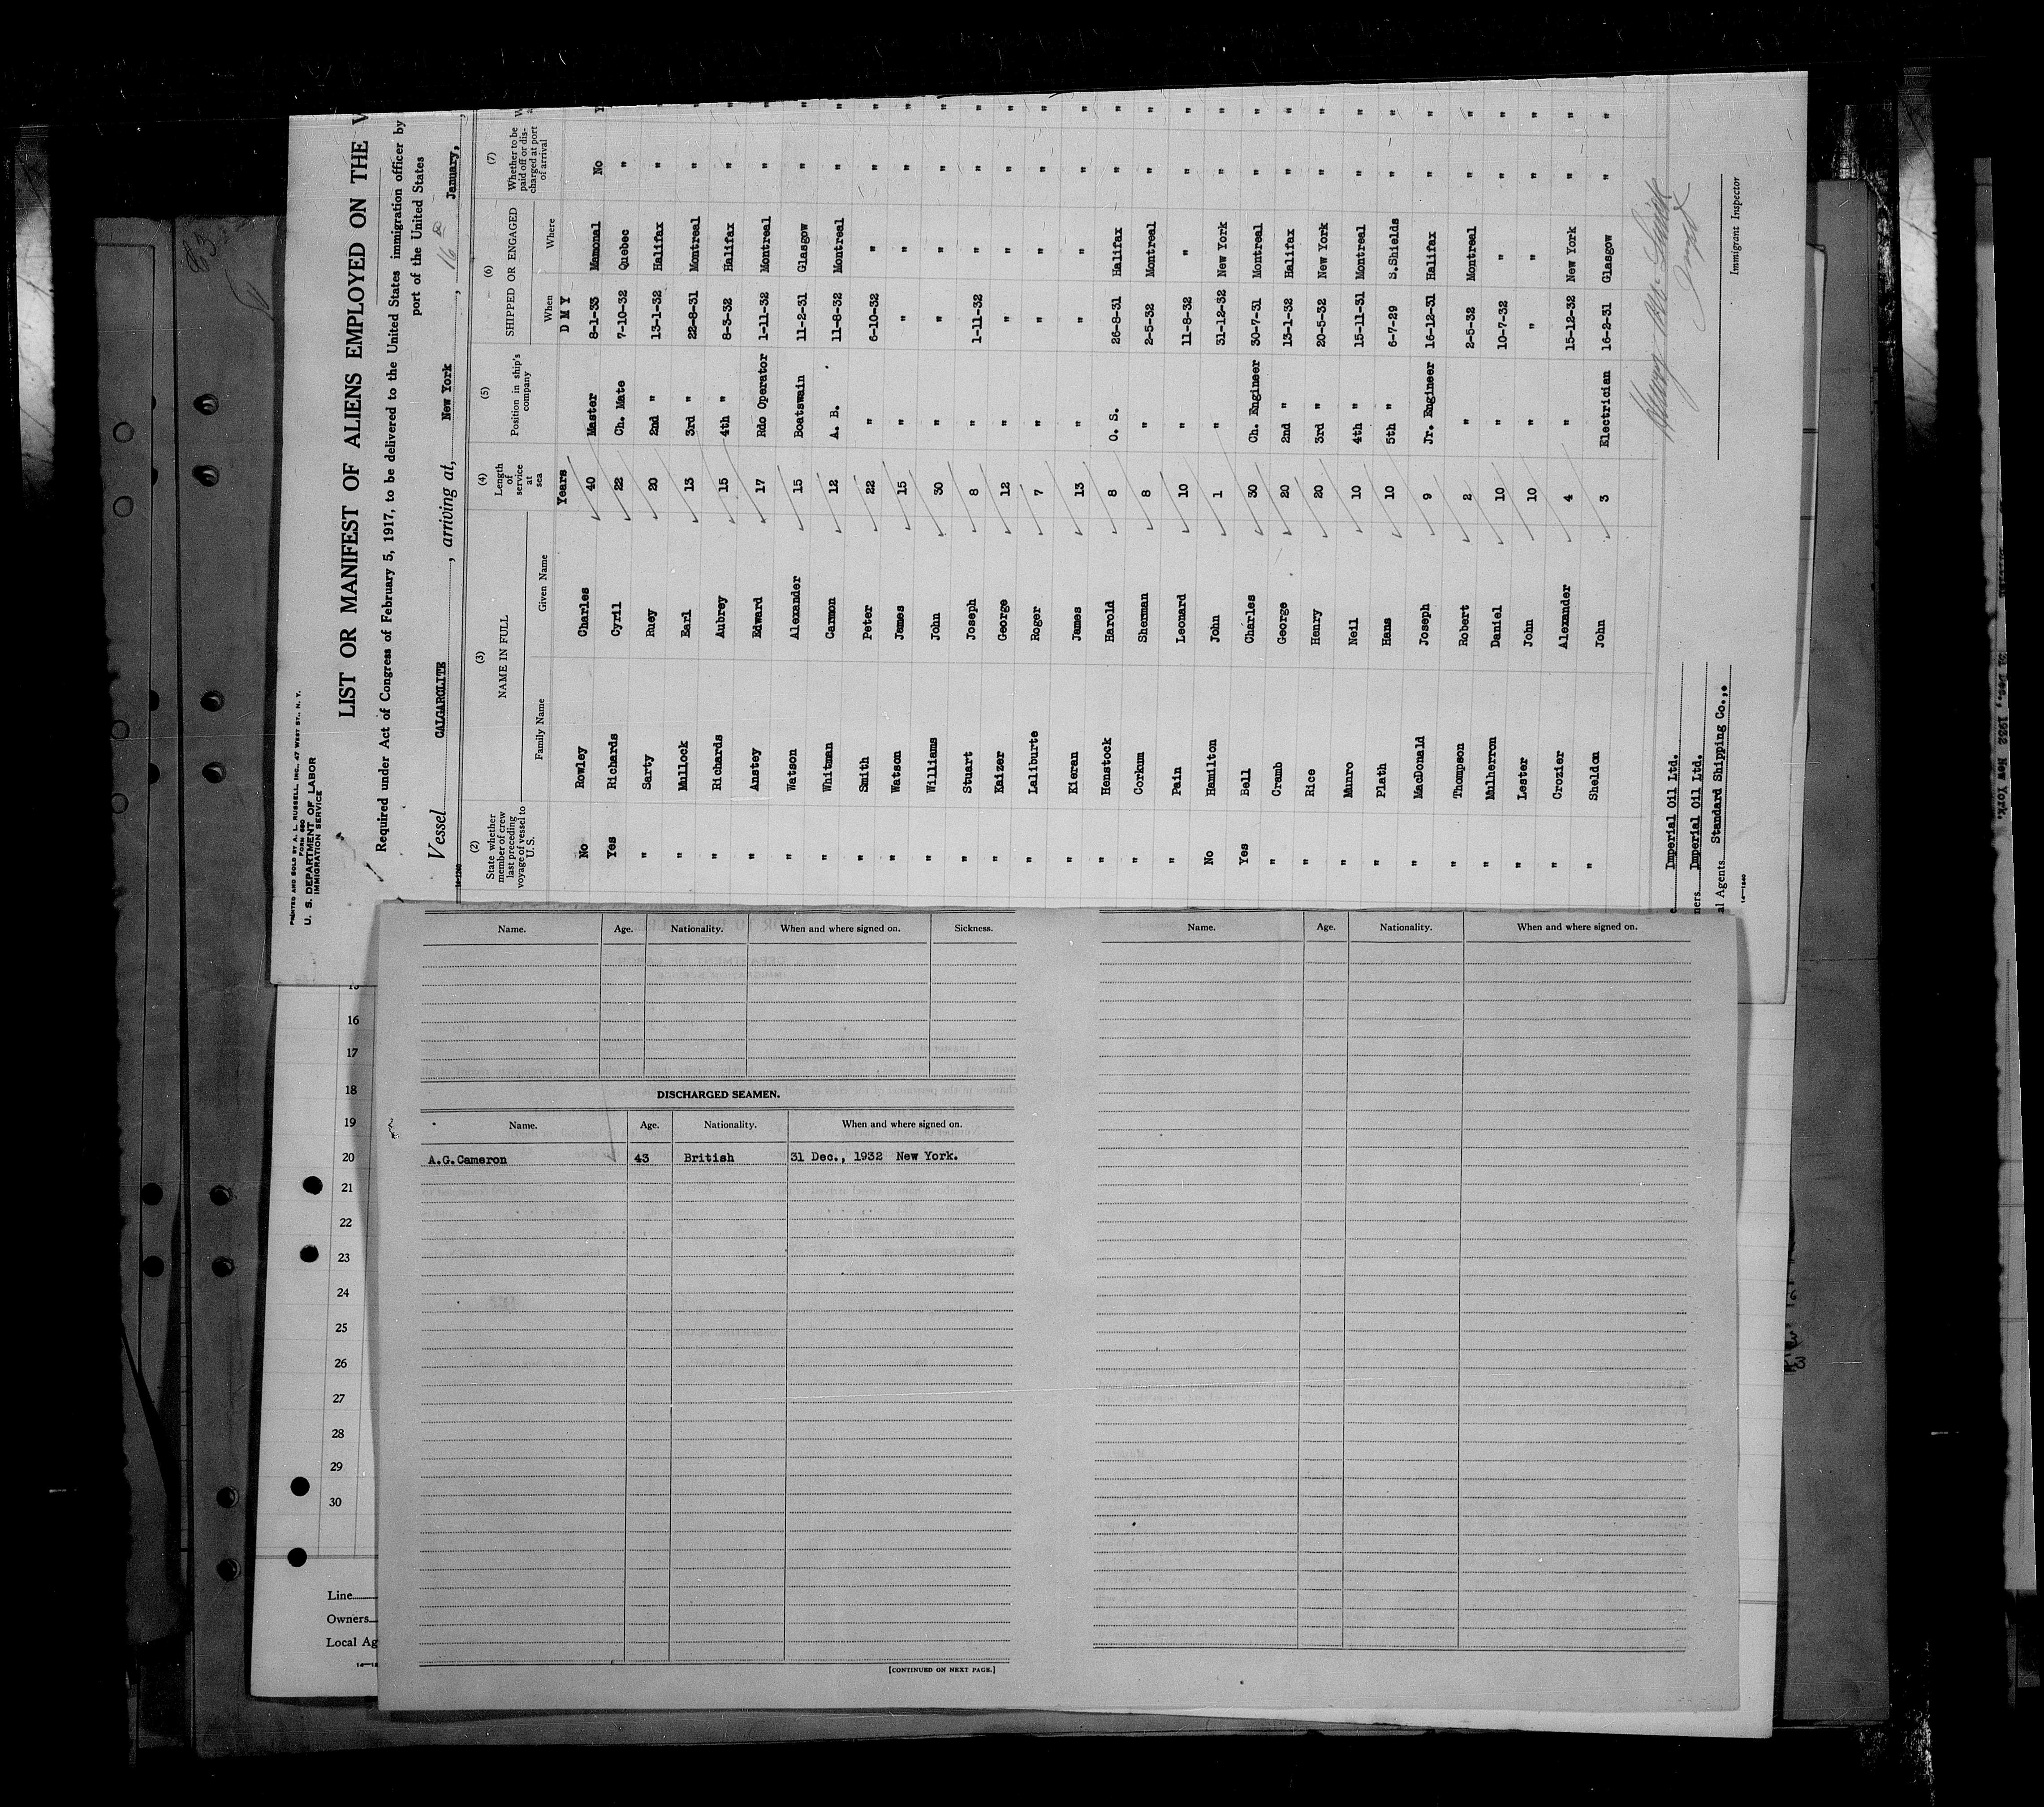 PRINTED AND SOLD BY A. L. RUSSELL, INC., 47 WEST ST., N. Y.
FORM 680
U. S. DEPARTMENT OF LABOR
IMMIGRATION SERVICE
LIST OR MANIFEST OF ALIENS EMPLOYED ON THE
Required under Act of Congress of February 5, 1917, to be delivered to the United States immigration officer by
port of the United States
Vessel CALGAROLITE, arriving at, New York, 16 January,
(2) State whether member of crew last preceding voyage of vessel to U.S. (3) NAME IN FULL Family Name Given Name (4) Length of service at sea (5) Position in ship's company (6) SHIPPED OR ENGAGED When Where (7) Whether to be paid off or discharged at port of arrival
Years D M Y
No Rowley Charles 40 Master 8-1-33 Mamonal No
Yes Richards Cyril 22 Ch. Mate 7-10-32 Quebec "
" Sarty Ruey 20 2nd " 13-1-32 Halifax " "
" Mullock Earl 13 3rd " 22-8-31 Montreal " "
" Richards Aubrey 15 4th " 8-3-32 Halifax " "
" Anstey Edward 17 Rdo Operator 1-11-32 Montreal " "
" Watson Alexander 15 Boatswain 11-2-31 Glasgow " "
" Whitman Carmon 12 A. B. 11-8-32 Montreal " "
" Smith Peter 22 " 6-10-32 " " "
" Watson James 15 " " " " "
" Williams John 30 " " " " "
" Stuart Joseph 8 " 1-11-32 " " "
" Kaizer George 12 " " " " "
" Laliburte Roger 7 " " " " "
" Kieran James 13 " " " " "
" Henstock Harold 8 O. S. 26-8-31 Halifax " "
" Corkum Sherman 8 " 2-5-32 Montreal " "
" Pain Leonard 10 " 11-8-32 " " "
No Hamilton John 1 " 31-12-32 New York " "
Yes Bell Charles 30 Ch. Engineer 30-7-31 Montreal " "
" Cramb George 20 2nd " 13-1-32 Halifax " "
" Rice Henry 20 3rd " 20-5-32 New York " "
" Munro Neil 10 4th " 15-11-31 Montreal " "
" Plath Hans 10 5th " 6-7-29 S.Shields " "
" MacDonald Joseph 9 Jr. Engineer 16-12-31 Halifax " "
" Thompson Robert 2 " 2-5-32 Montreal " "
" Mulherron Daniel 10 " 10-7-32 " " "
" Lester John 10 " " " " "
" Crozier Alexander 4 " 15-12-32 New York " "
" Sheldon John 3 Electrician 16-2-31 Glasgow " "
Imperial Oil Ltd.
ners Imperial Oil Ltd.
al Agents Standard Shipping Co.,.
Immigrant Inspector
Name. Age. Nationality. When and where signed on. Sickness.
DISCHARGED SEAMEN.
Name. Age. Nationality. When and where signed on.
A.G.Cameron 43 British 31 Dec., 1932 New York.
[CONTINUED ON NEXT PAGE.]
Name. Age. Nationality. When and where signed on.
16
17
18
19
20
21
22
23
24
25
26
27
28
29
30
Line
Owners
Local Ag
31 Dec., 1932 New York.